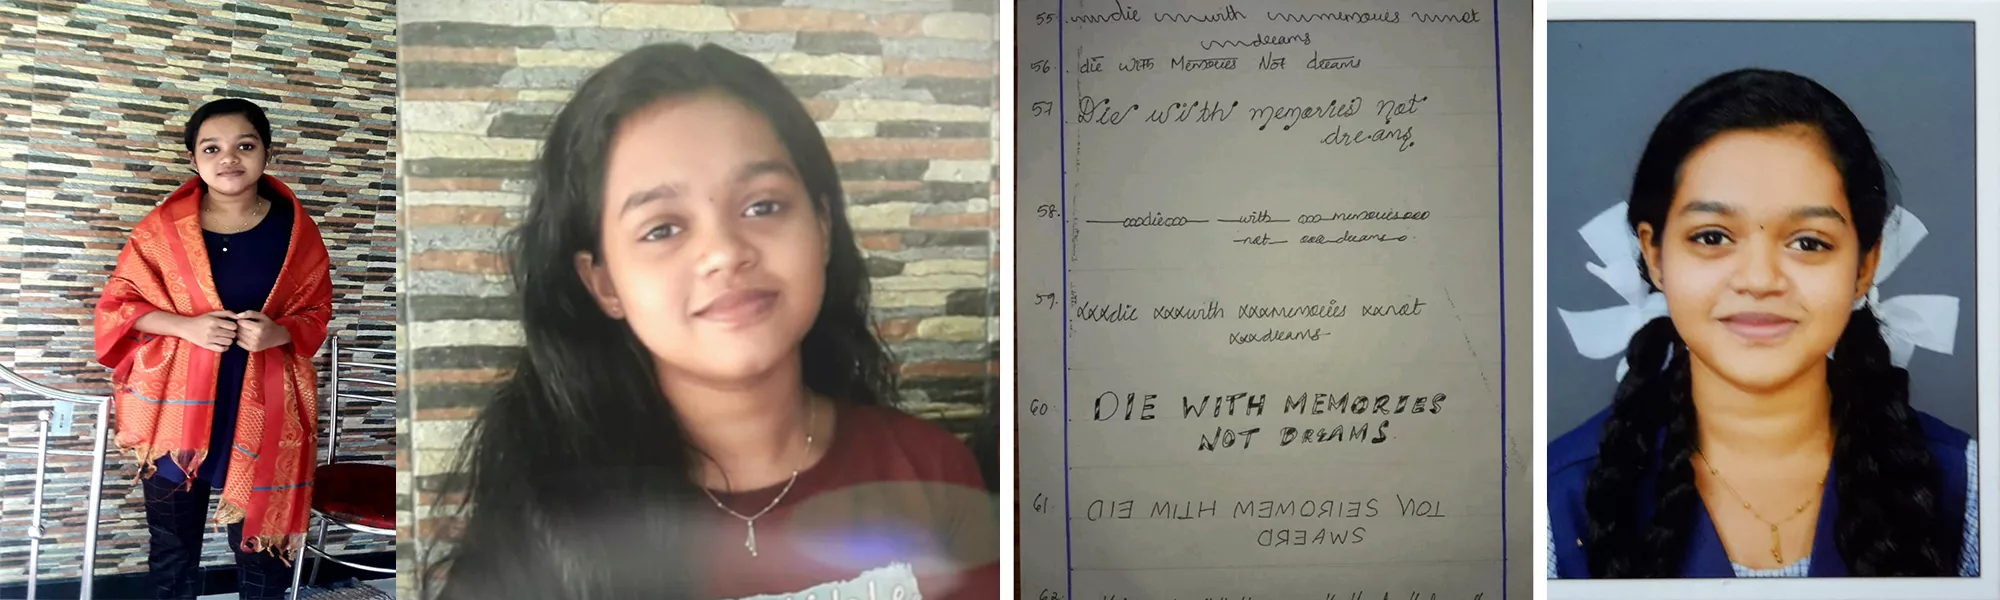 55. die with memories not
dreams
56. die with Memories Not dreams
57 Die with memories not
dreams
58. die with memories
not dreams
59. xxxdie xxxwith xxxmemories xxnot
xxxdreams
60. DIE WITH MEMORIES
NOT DREAMS
61. DIE WITH MEMORIES NOT
DREAMS
62.